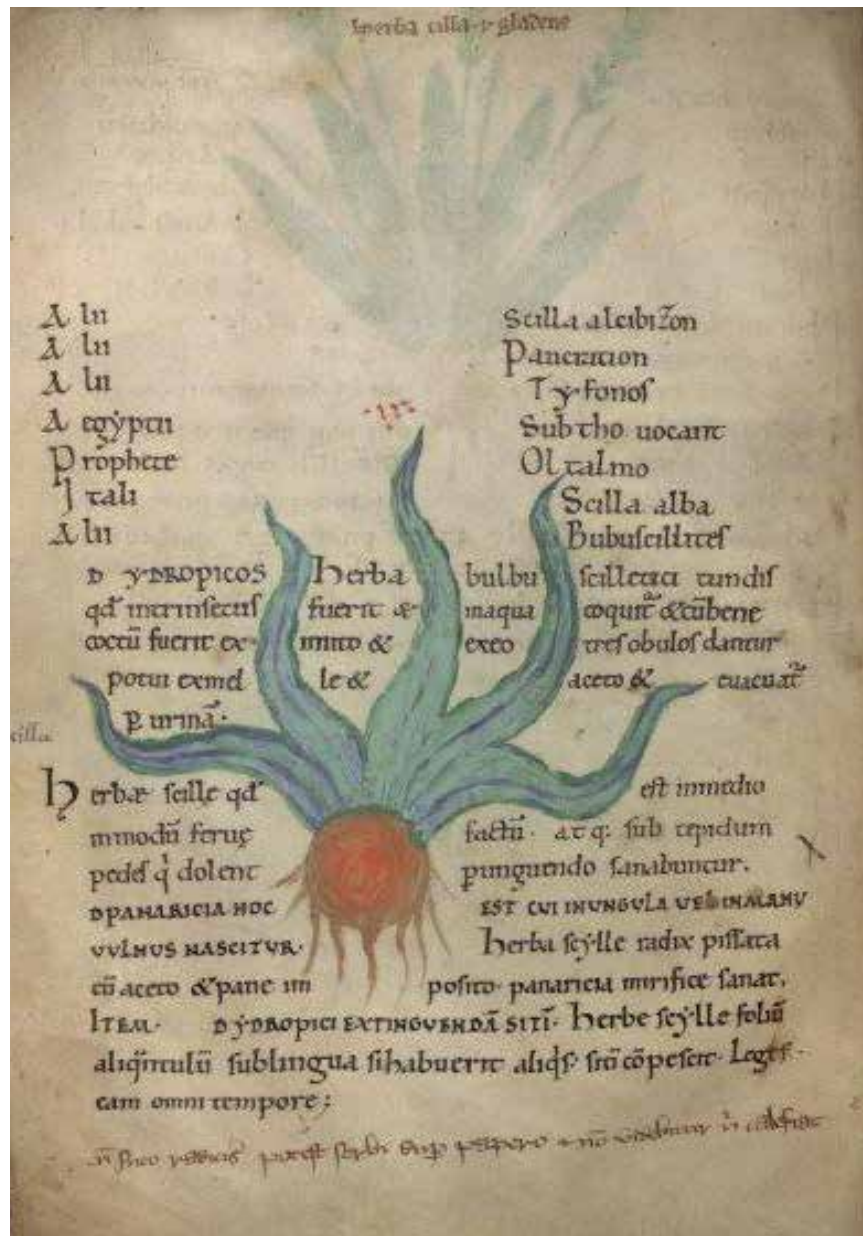 herba cilla. gladene
A lii Scilla alcibizon
A lii Pancration
A lii Tyfonos
A egyptii Subtho uocant
Prophete Oltalmo
Itali Scilla alba
A lii Bubuscillites
D YDROPICOS herba bulbu scilletici tundis
qđ intrinsecus fuerit & inaqua coquit̃ & cũbene
coctũ fuerit ex imito & exeo tres obulos dantur
potui exmel le & aceto & euacuat̃
p urinã.
cilla
herbæ scille qđ est inmedio
inmodũ feruę factũ. atq: sub tepidum
pedes q̇ dolent punguendo sanabuntur.
D PANARICIA HOC EST CUI INUNGULA UEL INMANU
VULNUS NASCITUR. herba scylle radix pissata
cũ aceto & pane im posito. panaricia mirifice sanat.
ITEM. D YDROPICI EXTINGUENDÃ SITĨ. herbe scylle foliũ
aliqntulũ sublingua sihabuerit aliqs. sitĩ cõpescit. Leg
eam omni tempore;